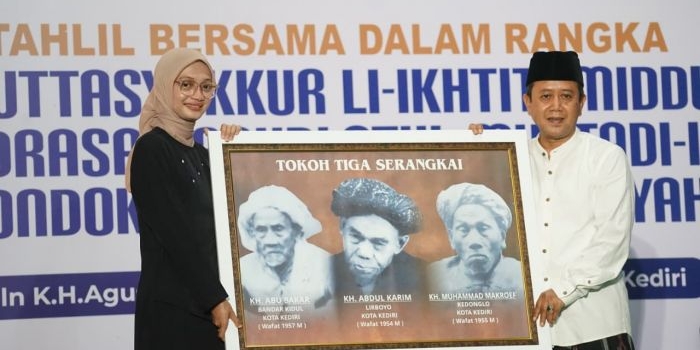 TAHLIL BERSAMA DALAM RANGKA
UTTASY KKUR LI-IKHTIT MIDDI
DRASA TADI-I
ONDOK YAH
ln K.H.Agu Kediri
TOKOH TIGA SERANGKAI
KH. ABU BAKAR
BANDAR KIDUL
KOTA KEDIRI
( Wafat 1957 M )
KH. ABDUL KARIM
LIRBOYO
KOTA KEDIRI
( Wafat 1954 M )
KH. MUHAMMAD MAKROEF
KEDONGLO
KOTA KEDIRI
( Wafat 1955 M )